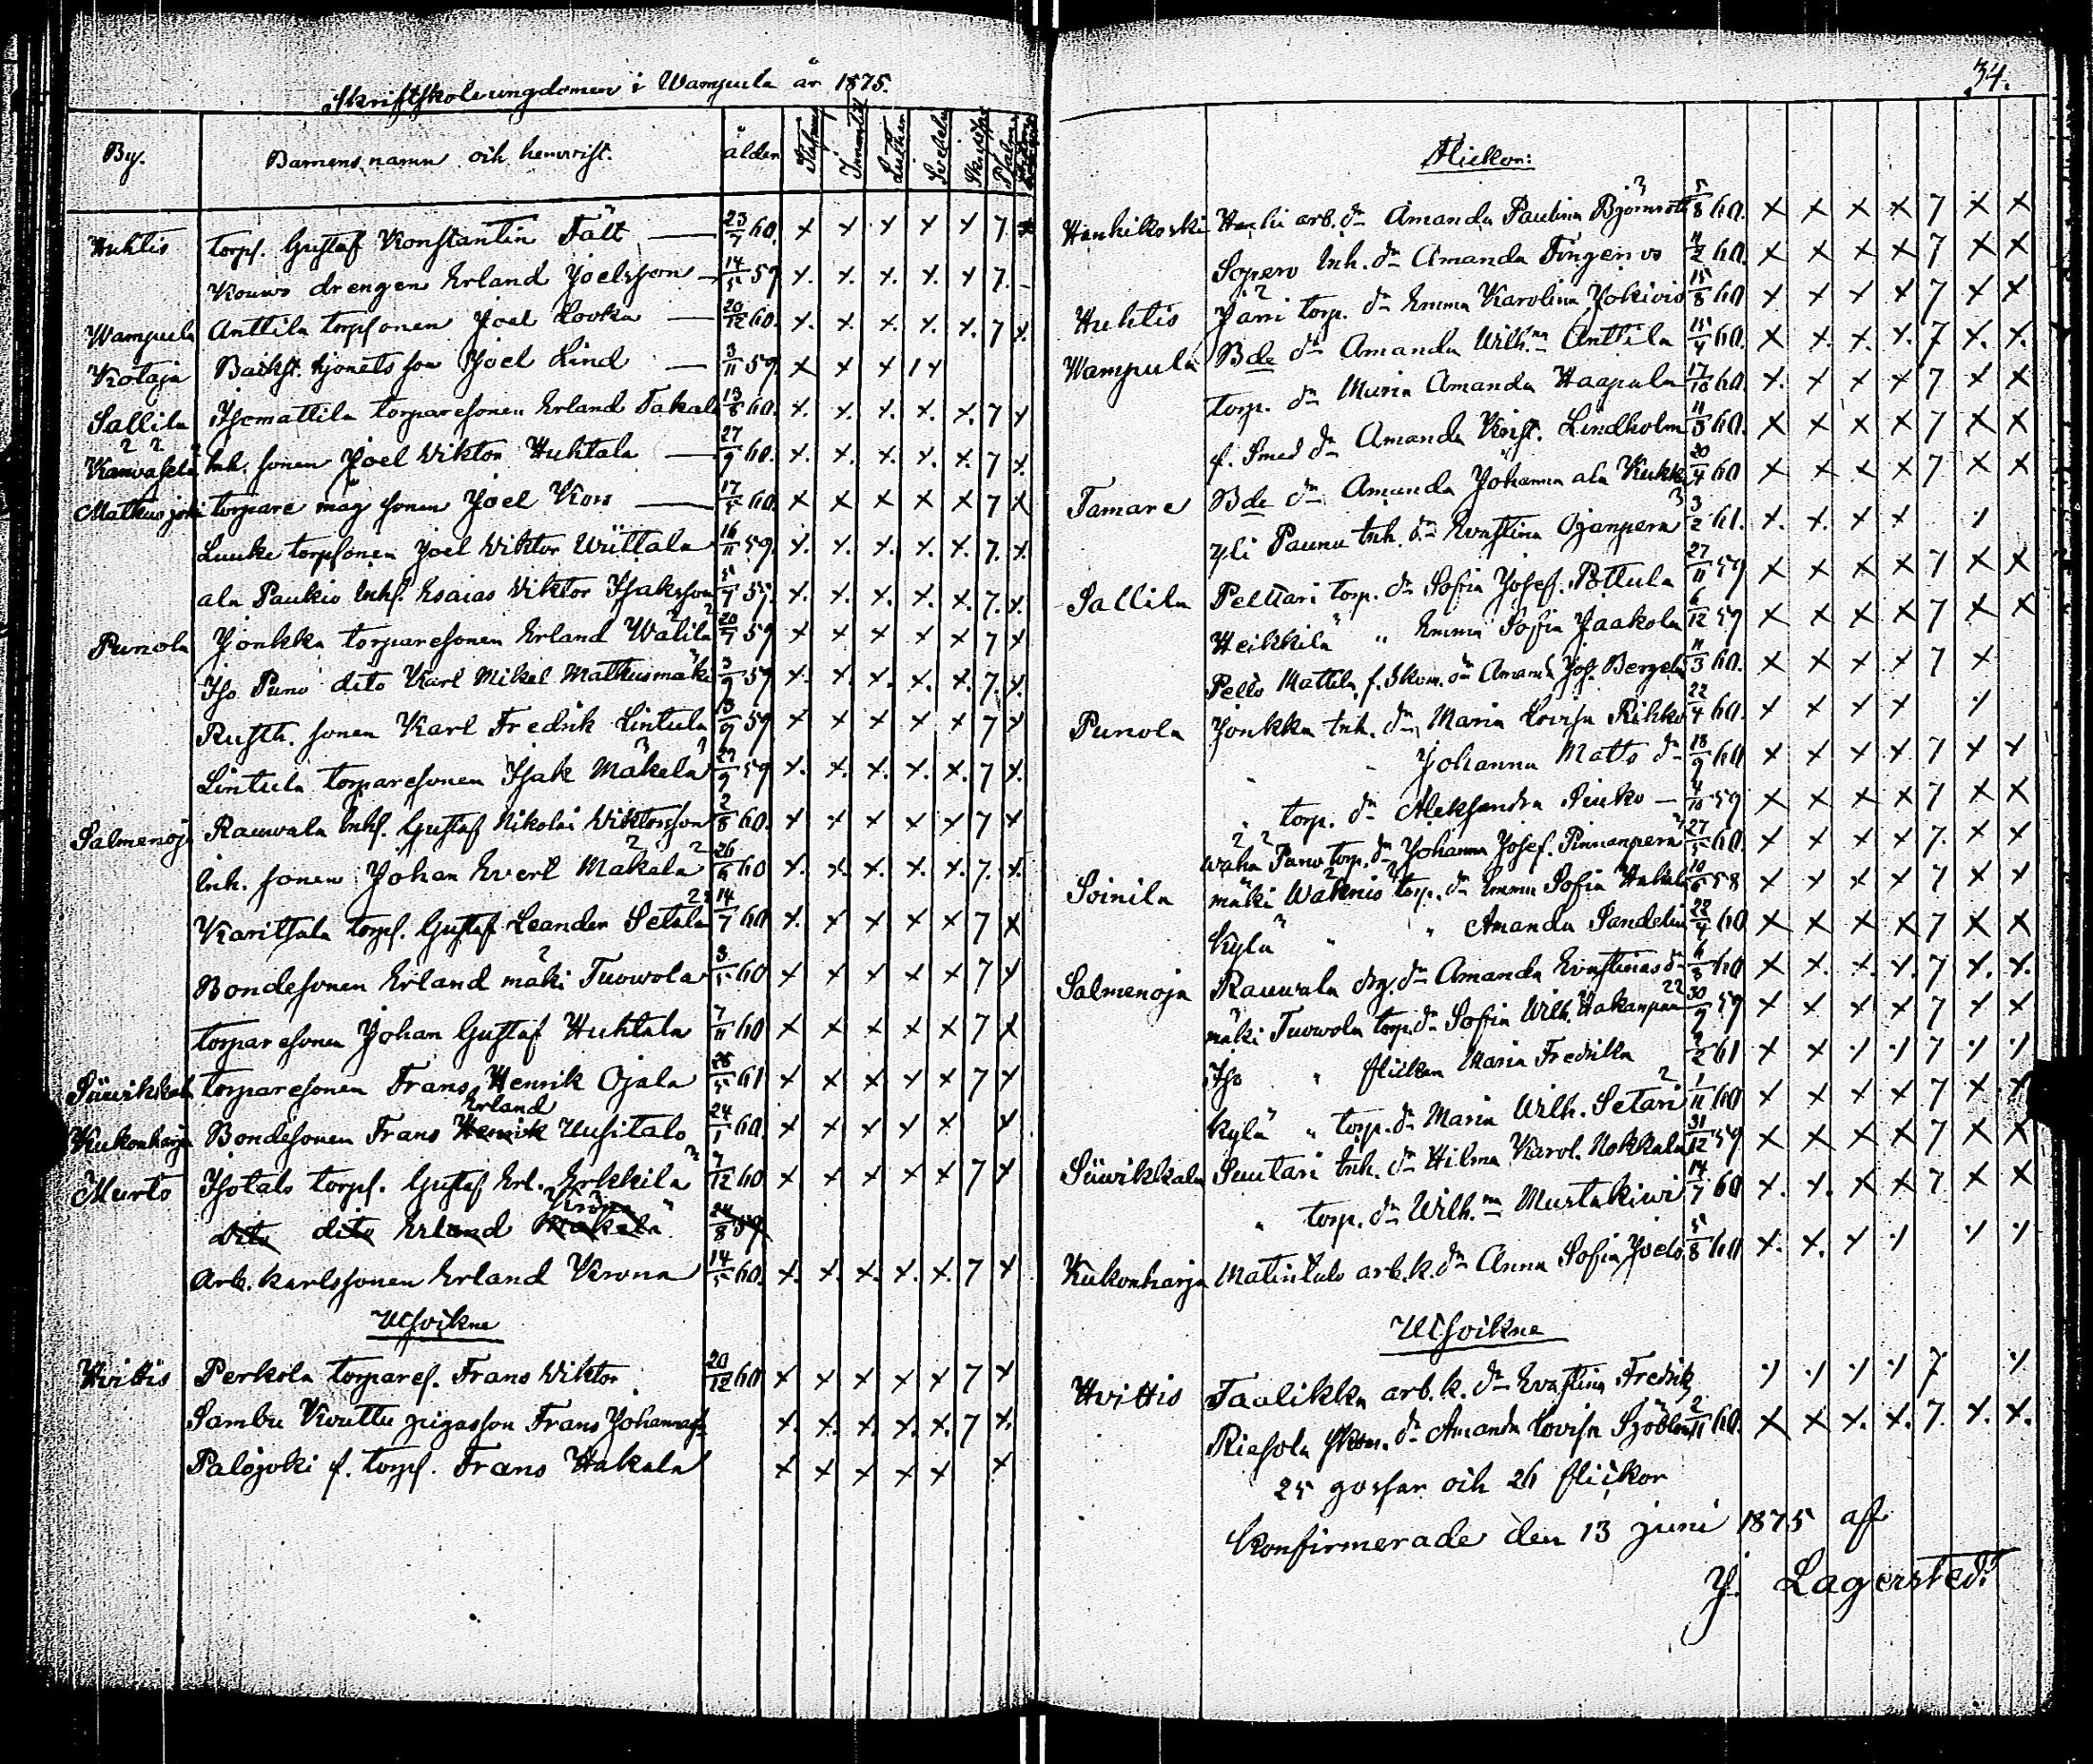 Skriftskole ungdomen i Wampula år 1875.
By. Barnens namn och hemvist. ålder
Huhtis torps. Gustaf Konstantin Fält — 23/7 60. x x x x x 7 x
Kouvo drengen Erland Joelsson — 14/5 59 x. x. x. x. x 7. –
Wampula Anttila torpsonen Joel Lovka — 20/12 60. x. x. x. x. x. 7 x.
Kotaja Joel Lind — 3/11 59. x x x
Sallila Isomattila torparesonen Erland Takala 13/8 60. x. x. x. x. x. 7 x
Kanvasela Inh. sonen Joel Viktor Huhtala — 27/9 60. x. x. x. x. x. 7 x.
Matkusjoki torpare måg sonen Joel Kors — 17/5 60. x x x x x 7 x
Luuke torpsonen Joel Viktor Uüttala 16/11 59. x. x. x. x. x. 7. x.
ala Paukio Inhs. Esaias Viktor Isaksson 59. x. x. x. x. x. 7. x.
Punola Jonkka torparesonen Erland Walila 20/7 59 x x x x x 7 x
Iso Puno dito Karl Mikel Matkusmäki 3/9 59 x. x. x. x. x. 7. x.
Rusth. sonen Karl Fredrik Lintula 13/9 59 x x x x x 7 x
Lintula torparesonen Isak Mäkelä 27/9 59 x. x. x. x. x. 7 x.
Salmenoja Rauwala Inhs. Gustaf Nikolai Viktorsson 2/8 60. x x x x x 7 x
Inh. sonen Johan Evert Mäkelä 26/6 60 x. x. x. x. x. 7. x.
Karitsala torps. Gustaf Leander Setälä 14/7 60 x. x x x x 7 x
Bondesonen Erland mäki Tuowola 3/5 60 x x x x x 7 x
torparesonen Johan Gustaf Huhtala 7/11 60 x x x x x 7 x
Süwikkala torparesonen Frans Henrik Ojala 28/5 61 x x x x x 7 x
Erland
Kukonharja Bondesonen Frans Henrik Uusitalo 24/1 60. x x x x x x
Murto Isotalo torps. Gustaf Erl. Erkkilä 7/12 60 x x x x x 7 x
Krona
dito dito Erland Mäkelä 24/8 59
Arb. karlssonen Erland Krona 14/5 60. x. x. x. x. x. 7 x
Utsvikne
Hvittis Perkola torpares. Frans Viktor 20/12 60 x x x x x 7 x
Sambu Kvuttu pigasson Frans Johannas x. x. x. x. x. 7 x.
Palojoki f. torps. Frans Hakala x x x x x x
34.
Flickor:
Hanhikoski Hanhi arb. dr Amanda Paulina 5/8 60. x x x x 7 x x
Sopero Inh. dr Amanda Fingerros 60. x x x x 7 x x
Huhtis Järri torp. dr Emma Karolina 15/8 60 x x x x 7 x x
Wampula Bde dr Amanda Wilh.na Anttila 15/4 60. x x. x. x. 7 x. x.
torp. dr Maria Amanda Haapala 17/10 60. x. x x x 7 x x
f. Smed dr Amanda Krist. Lindholm 11/3 60. x x x x 7 x x
Tamare Bde dr Amanda Johanna ala Kukko 20/4 60 x x x x 7 x x
yli Pauna Inh. dr Evastina Ojanperä 3/2 61. x. x. x x
Sallila Pelttari torp. dr Sofia Josef. Pottula 27/11 59 x x x x 7 x x
Heikkilä " " Emma Sofia Jaakola 6/12 59 x x x x 7 x x
Pello Mattila f. Skom. dr Amanda Jos. Bergelin 11/3 60. x x x x 7 x
Punola Jonkka Inh. dr Maria Lovisa Rihko 22/4 60. x x x x
" " Johanna Mats dr 18/9 60 x x x x 7 x x
" torp. dr Aleksandra — 4/10 59 x x x x 7 x x
waha Puno torp. dr Johanna Josef. Pinnanperä 27/5 60. x x x x 7. x x
Soinila mäki Waknio torp. dr Emma Sofia Hakala 10/6 58 x x x x 7 x x
Kylä " " Amanda Sandelin 22/4 60 x x x x 7 x x
Salmenoja Rauwala drg. dr Amanda Evastinas dr 60 x x. x. x. 7 x. x.
mäki Tuowola torp. dr Sofia Wilh. Hakanpää 30/9 59 x x x x 7 x x
Iso " flickan Maria Fredrika 2/2 61 x x 7
Kylä " torp. dr Maria Wilh. Setäri 1/11 60 x x x x 7 x x
Süwikkala Suutari Inh. dr Hilma Karol. Nokkala 31/12 59 x x x x 7 x x
" torp. dr Wilh.na Mustakiwi 14/7 60 x. x. x x 7 x x
Kukonharja Matintalo arb. k. dr Anna Sofia Joels 5/8 60 x. x. x
Utsvikne
Hvittis Taalikka arb. k. dr Evastina Fredrik 7
Riesola Skom. dr Amanda Lovisa Sjöblom 2/11 60. x x x. x. 7. x. x.
25 gossar och 26 flickor
Konfirmerade den 13 juni 1875 af
J. Lagerstedt